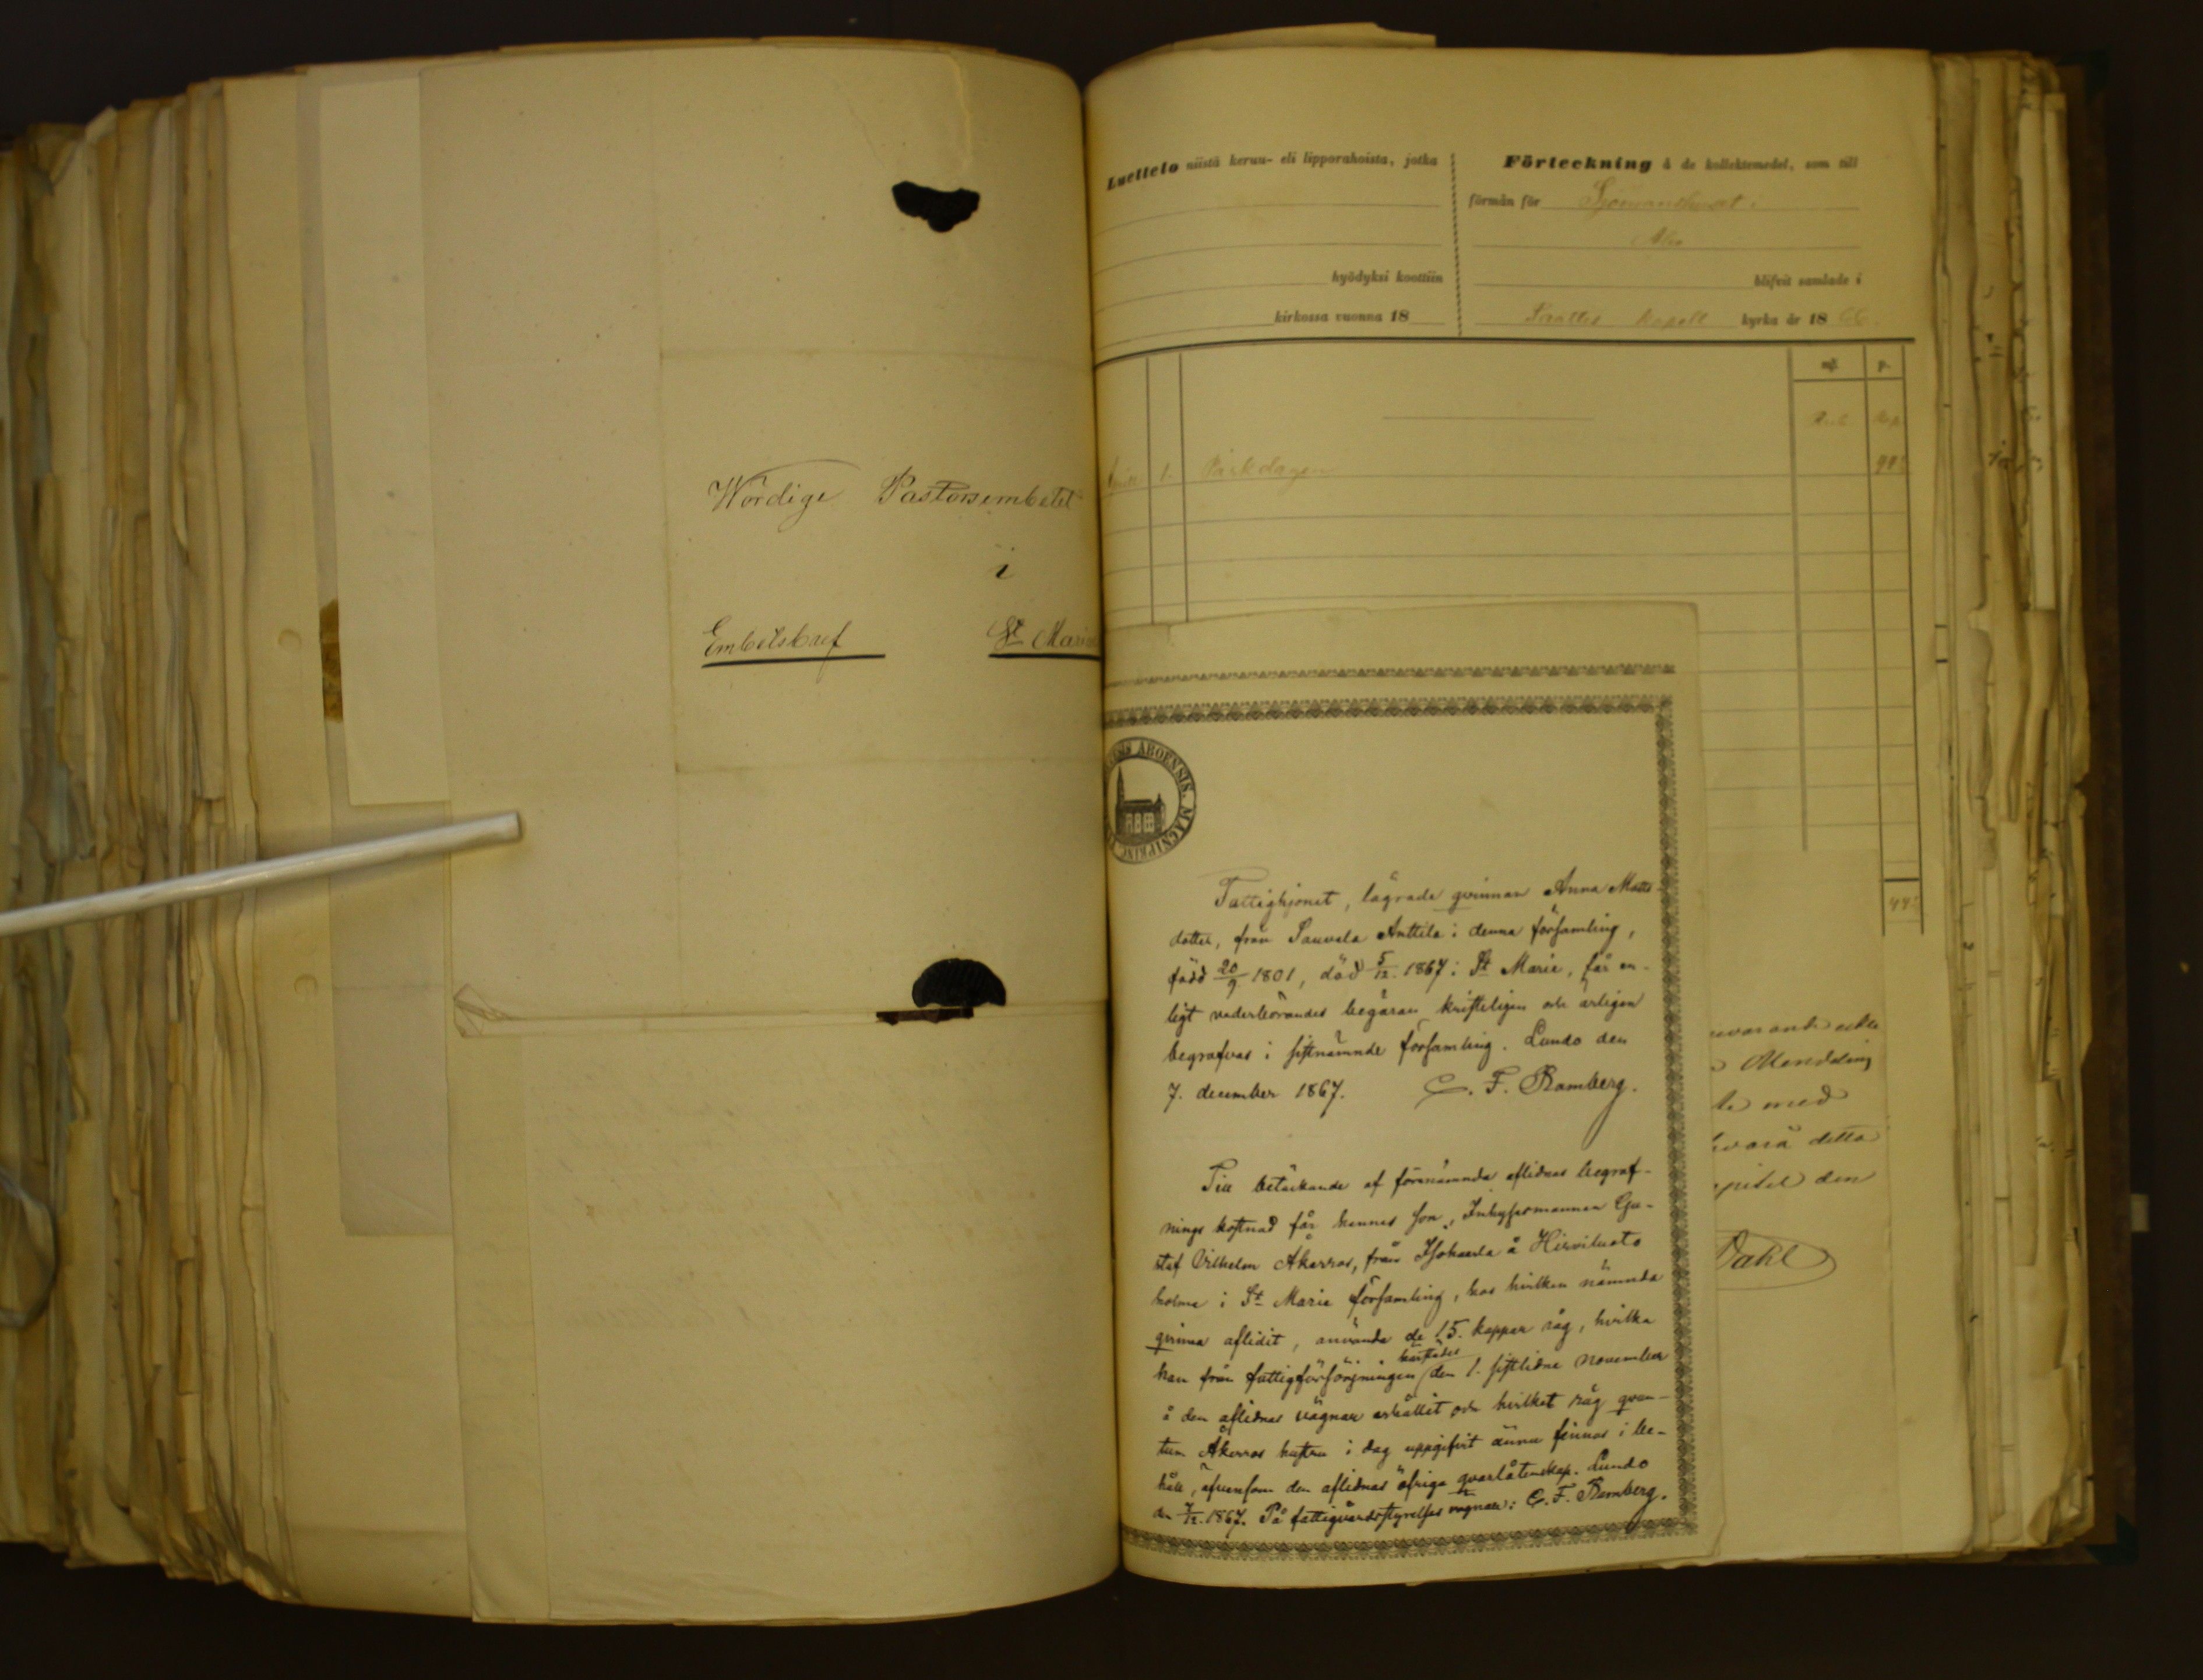 Wördige Pastorsembetet
i
Embetsbref St Marie
Luettelo niistä keruu- eli lipporahoista, jotka
hyödyksi koottiin
kirkossa vuonna 18
Förteckning å de kollektemedel, som till
förmån för Sjömanshuset i
Åbo
blifvit samlade i
Kapell kyrka år 18 66.
mf. p.
Rub. Kop.
1. Påskdagen
ABOENSIS. MAGNI PRINC.
Fattighjonet, lägrade qvinnan Anna Matts-
dotter, från Sauvala Anttila i denna församling,
född 20/9 1801, död 5/12 1867 i St Marie, får en-
ligt vederbörandes begäran kristeligen och ärligen
begrafvas i sistnämnde församling. Lundo den
7. december 1867. C. F. Ramberg.
Till betäckande af förenämnda aflidnas begraf-
nings kostnad får hennes son, Inhysesmannen Gu-
staf Vilhelm Åkerros, från Isokarla å Hirviluoto
holme i St Marie församling, hos hvilken nämnda
qvinna aflidit, använda de 15. kappar råg, hvilka
han från fattigförsörjningen härstädes den 1. sistlidne november
å den aflidnas vägnar erhållit och hvilket råg qvan-
tum Åkerros hustru i dag uppgifvit ännu finnas i be-
håll, äfvensom den aflidnas öfriga qvarlåtenskap. Lundo
den 7/12 1867. På fattigvårdsstyrelsens vägnar: C. F. Ramberg.
med
detta
den
Dahl